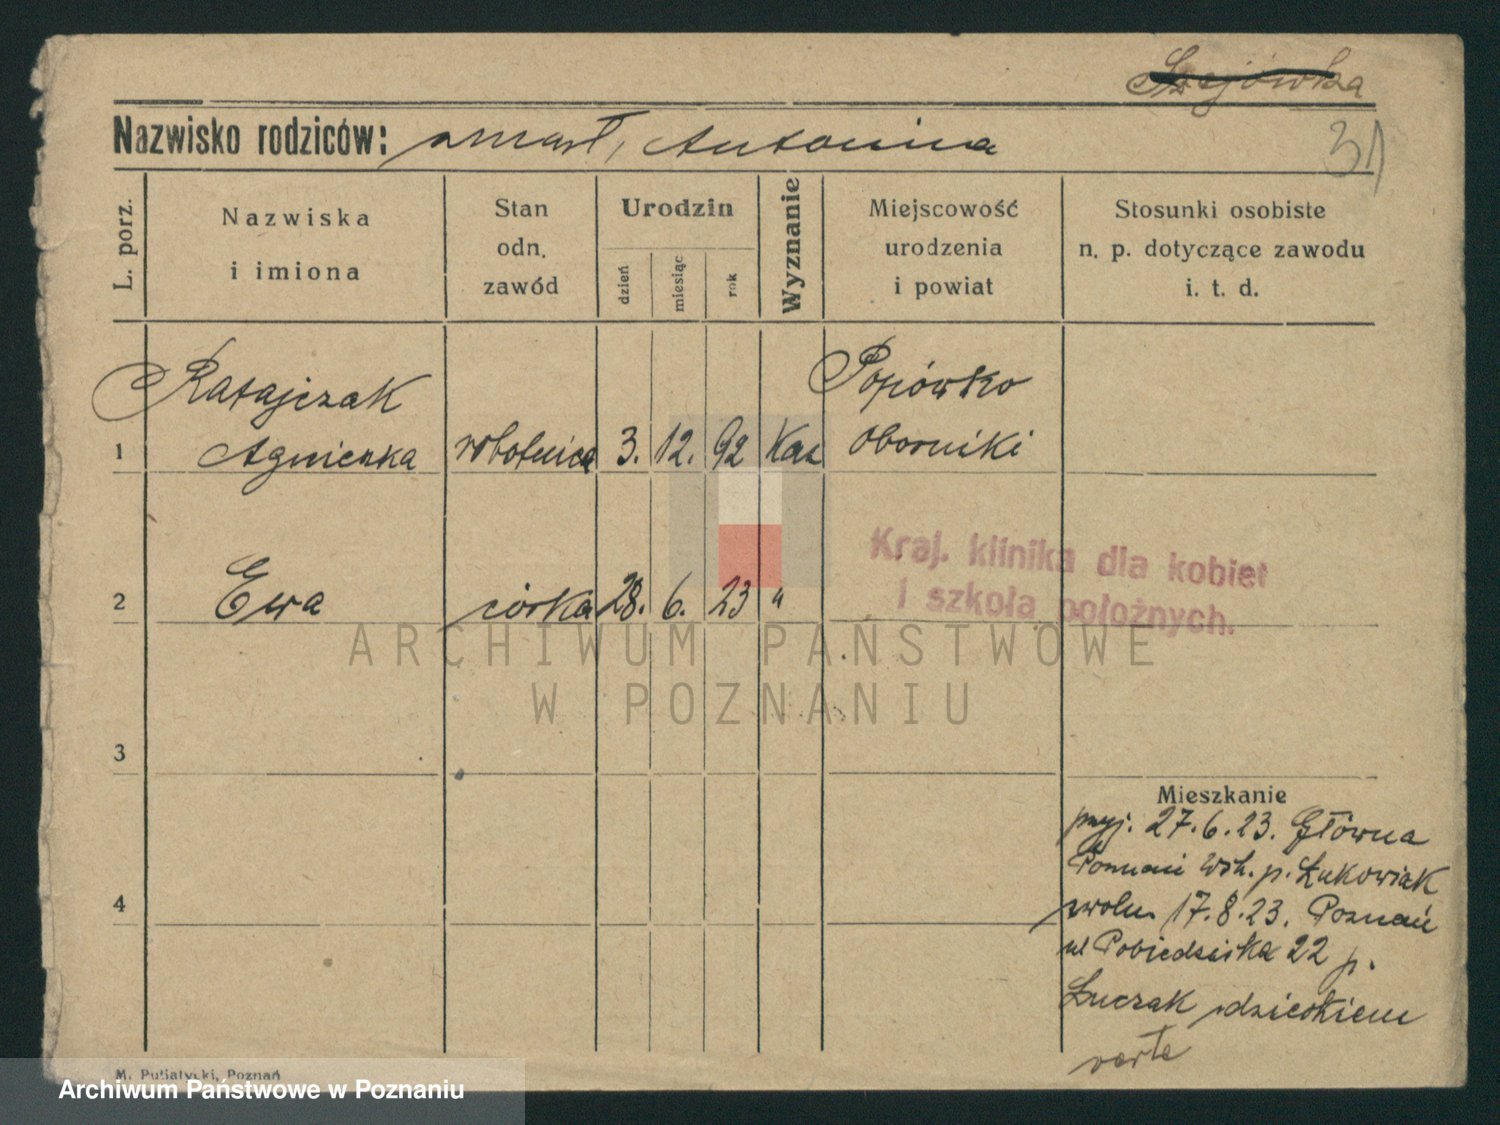 Szejówka
Nazwisko rodziców: zmarł, Antonina
31
L. porz.
Nazwiska
i imiona
Stan
odn.
zawód
Urodzin
dzień
miesiąc
rok
Wyznanie
Miejscowość
urodzenia
i powiat
Stosunki osobiste
n. p. dotyczące zawodu
i. t. d.
Ratajczak Popówko
1 Agnieszka robotnica 3. 12. 92 Kat Oborniki
Kraj. klinika dla kobiet
i szkoła położnych.
2 Ewa córka 28. 6. 23 "
ARCHIWUM PAŃSTWOWE
W POZNANIU
3
Mieszkanie
przyj. 27.6.23. Główna
Poznań Wsch. p. Łukowiak
4
zwoln. 17.8.23. Poznań
ul Pobiedziska 22 p.
Łuczak z dzieckiem
M. Putiatycki, Poznań
Archiwum Państwowe w Poznaniu